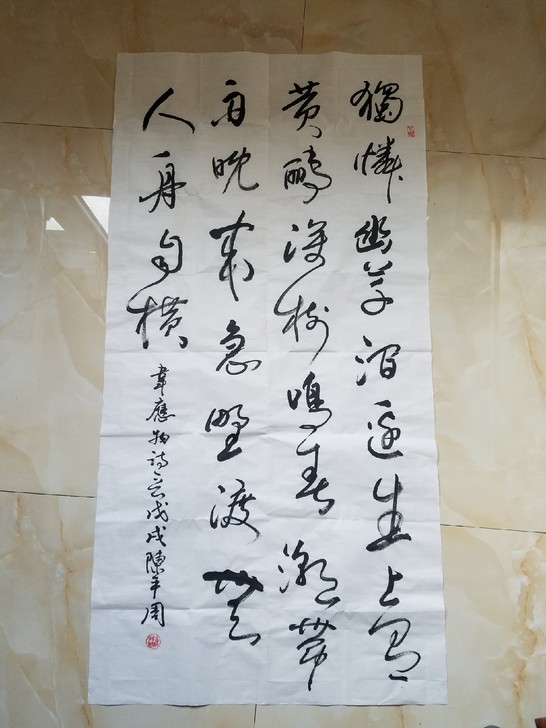 獨憐幽草澗邊生上有
黄鸝深樹鳴春潮帶
雨晚来急野渡無
人舟自橫
韋應物詩戊戌陳平周